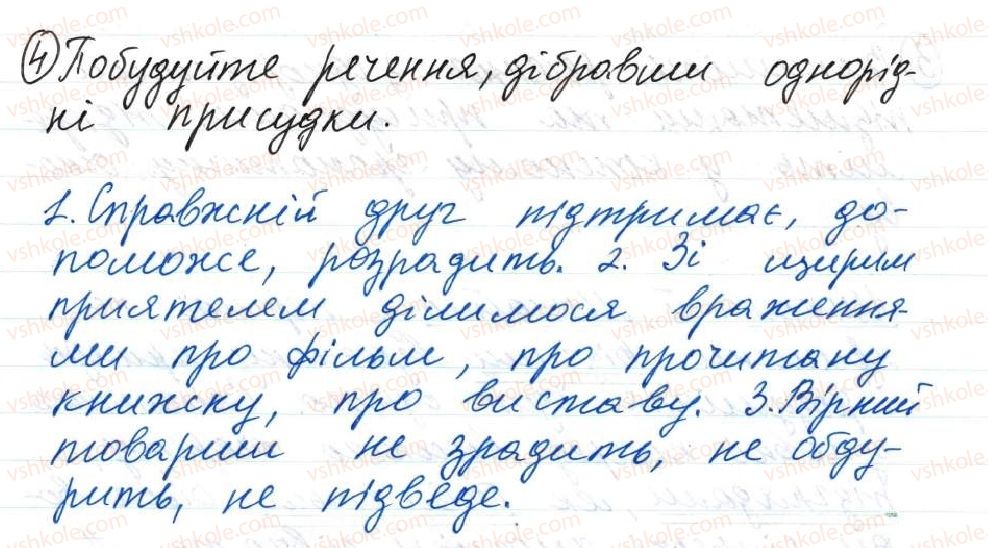 ④ Побудуйте речення, дібравши однорід-
ні присудки.
1. Справжній друг підтримає, до-
поможе, розрадить. 2. Зі щирим
приятелем ділимося враження-
ми про фільм, про прочитану
книжку, про виставу. 3. Вірний
товариш не зрадить, не обду-
рить, не підведе.